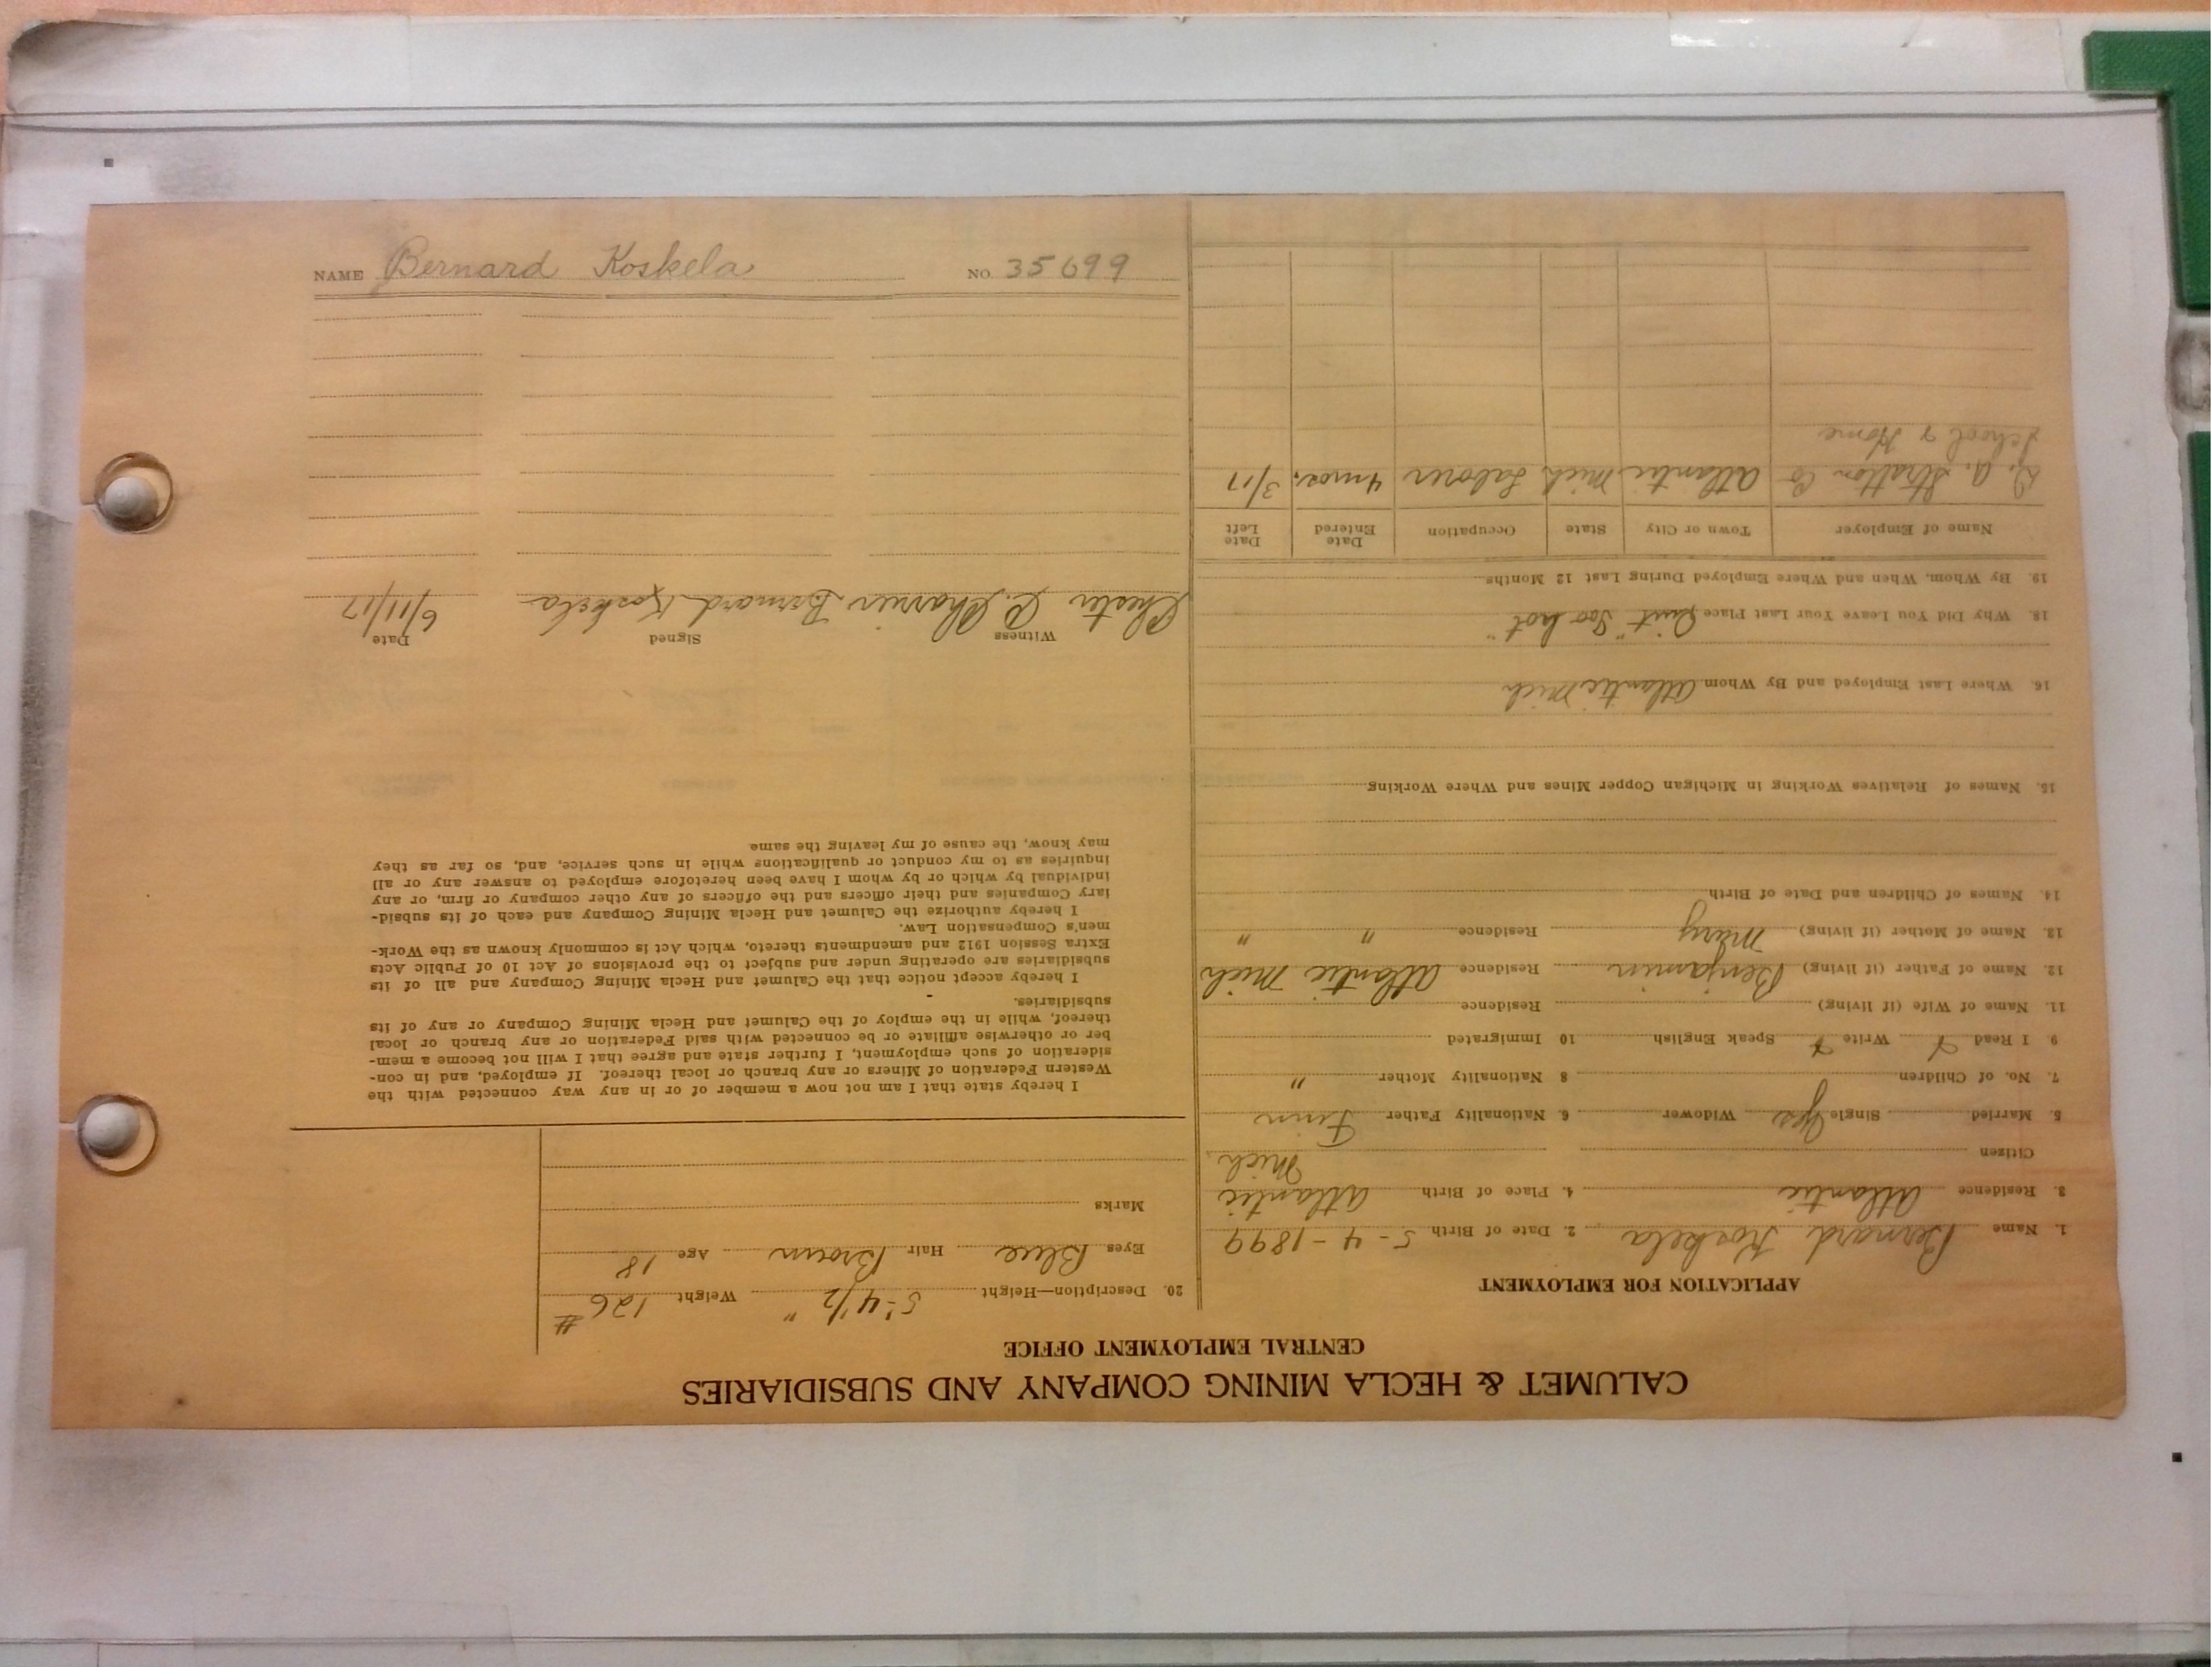 CALUMET & HECLA MINING COMPANY AND SUBSIDIARIES
CENTRAL EMPLOYMENT OFFICE
APPLICATION FOR EMPLOYMENT
1. Name Bernard Koskela 2. Date of Birth 5-4-1899
3. Residence Atlantic 4. Place of Birth Atlantic
Citizen Mich
5. Married Single Yes Widower 6. Nationality Father Finn
7. No. of Children 8 Nationality Mother "
9. I Read Write Speak English 10 Immigrated
11. Name of Wife (if living) Residence
12. Name of Father (if living) Benjamin Residence Atlantic Mich
13. Name of Mother (if living) Mary Residence " "
14. Names of Children and Date of Birth
15. Names of Relatives Working in Michigan Copper Mines and Where Working
16. Where Last Employed and By Whom Atlantic Mich
18. Why Did You Leave Your Last Place Quit "Too hot"
19. By Whom, When and Where Employed During Last 12 Months
Name of Employer Town or City State Occupation Date Entered Date Left
A. Stratton Co Atlantic Mich Laborer 4 mos. 3/17
School & Home
20. Description—Height 5'-4 1/2" Weight 126#
Eyes Blue Hair Brown Age 18
Marks
I hereby state that I am not now a member of or in any way connected with the
Western Federation of Miners or any branch or local thereof. If employed, and in con-
sideration of such employment, I further state and agree that I will not become a mem-
ber or otherwise affiliate or be connected with said Federation or any branch or local
thereof, while in the employ of the Calumet and Hecla Mining Company or any of its
subsidiaries.
I hereby accept notice that the Calumet and Hecla Mining Company and all of its
subsidiaries are operating under and subject to the provisions of Act 10 of Public Acts
Extra Session 1912 and amendments thereto, which Act is commonly known as the Work-
men's Compensation Law.
I hereby authorize the Calumet and Hecla Mining Company and each of its subsid-
iary Companies and their officers and the officers of any other company or firm, or any
individual by which or by whom I have been heretofore employed to answer any or all
inquiries as to my conduct or qualifications while in such service, and, so far as they
may know, the cause of my leaving the same.
Witness Signed Date
Chester Bernard Koskela 6/11/17
NAME Bernard Koskela NO. 35699